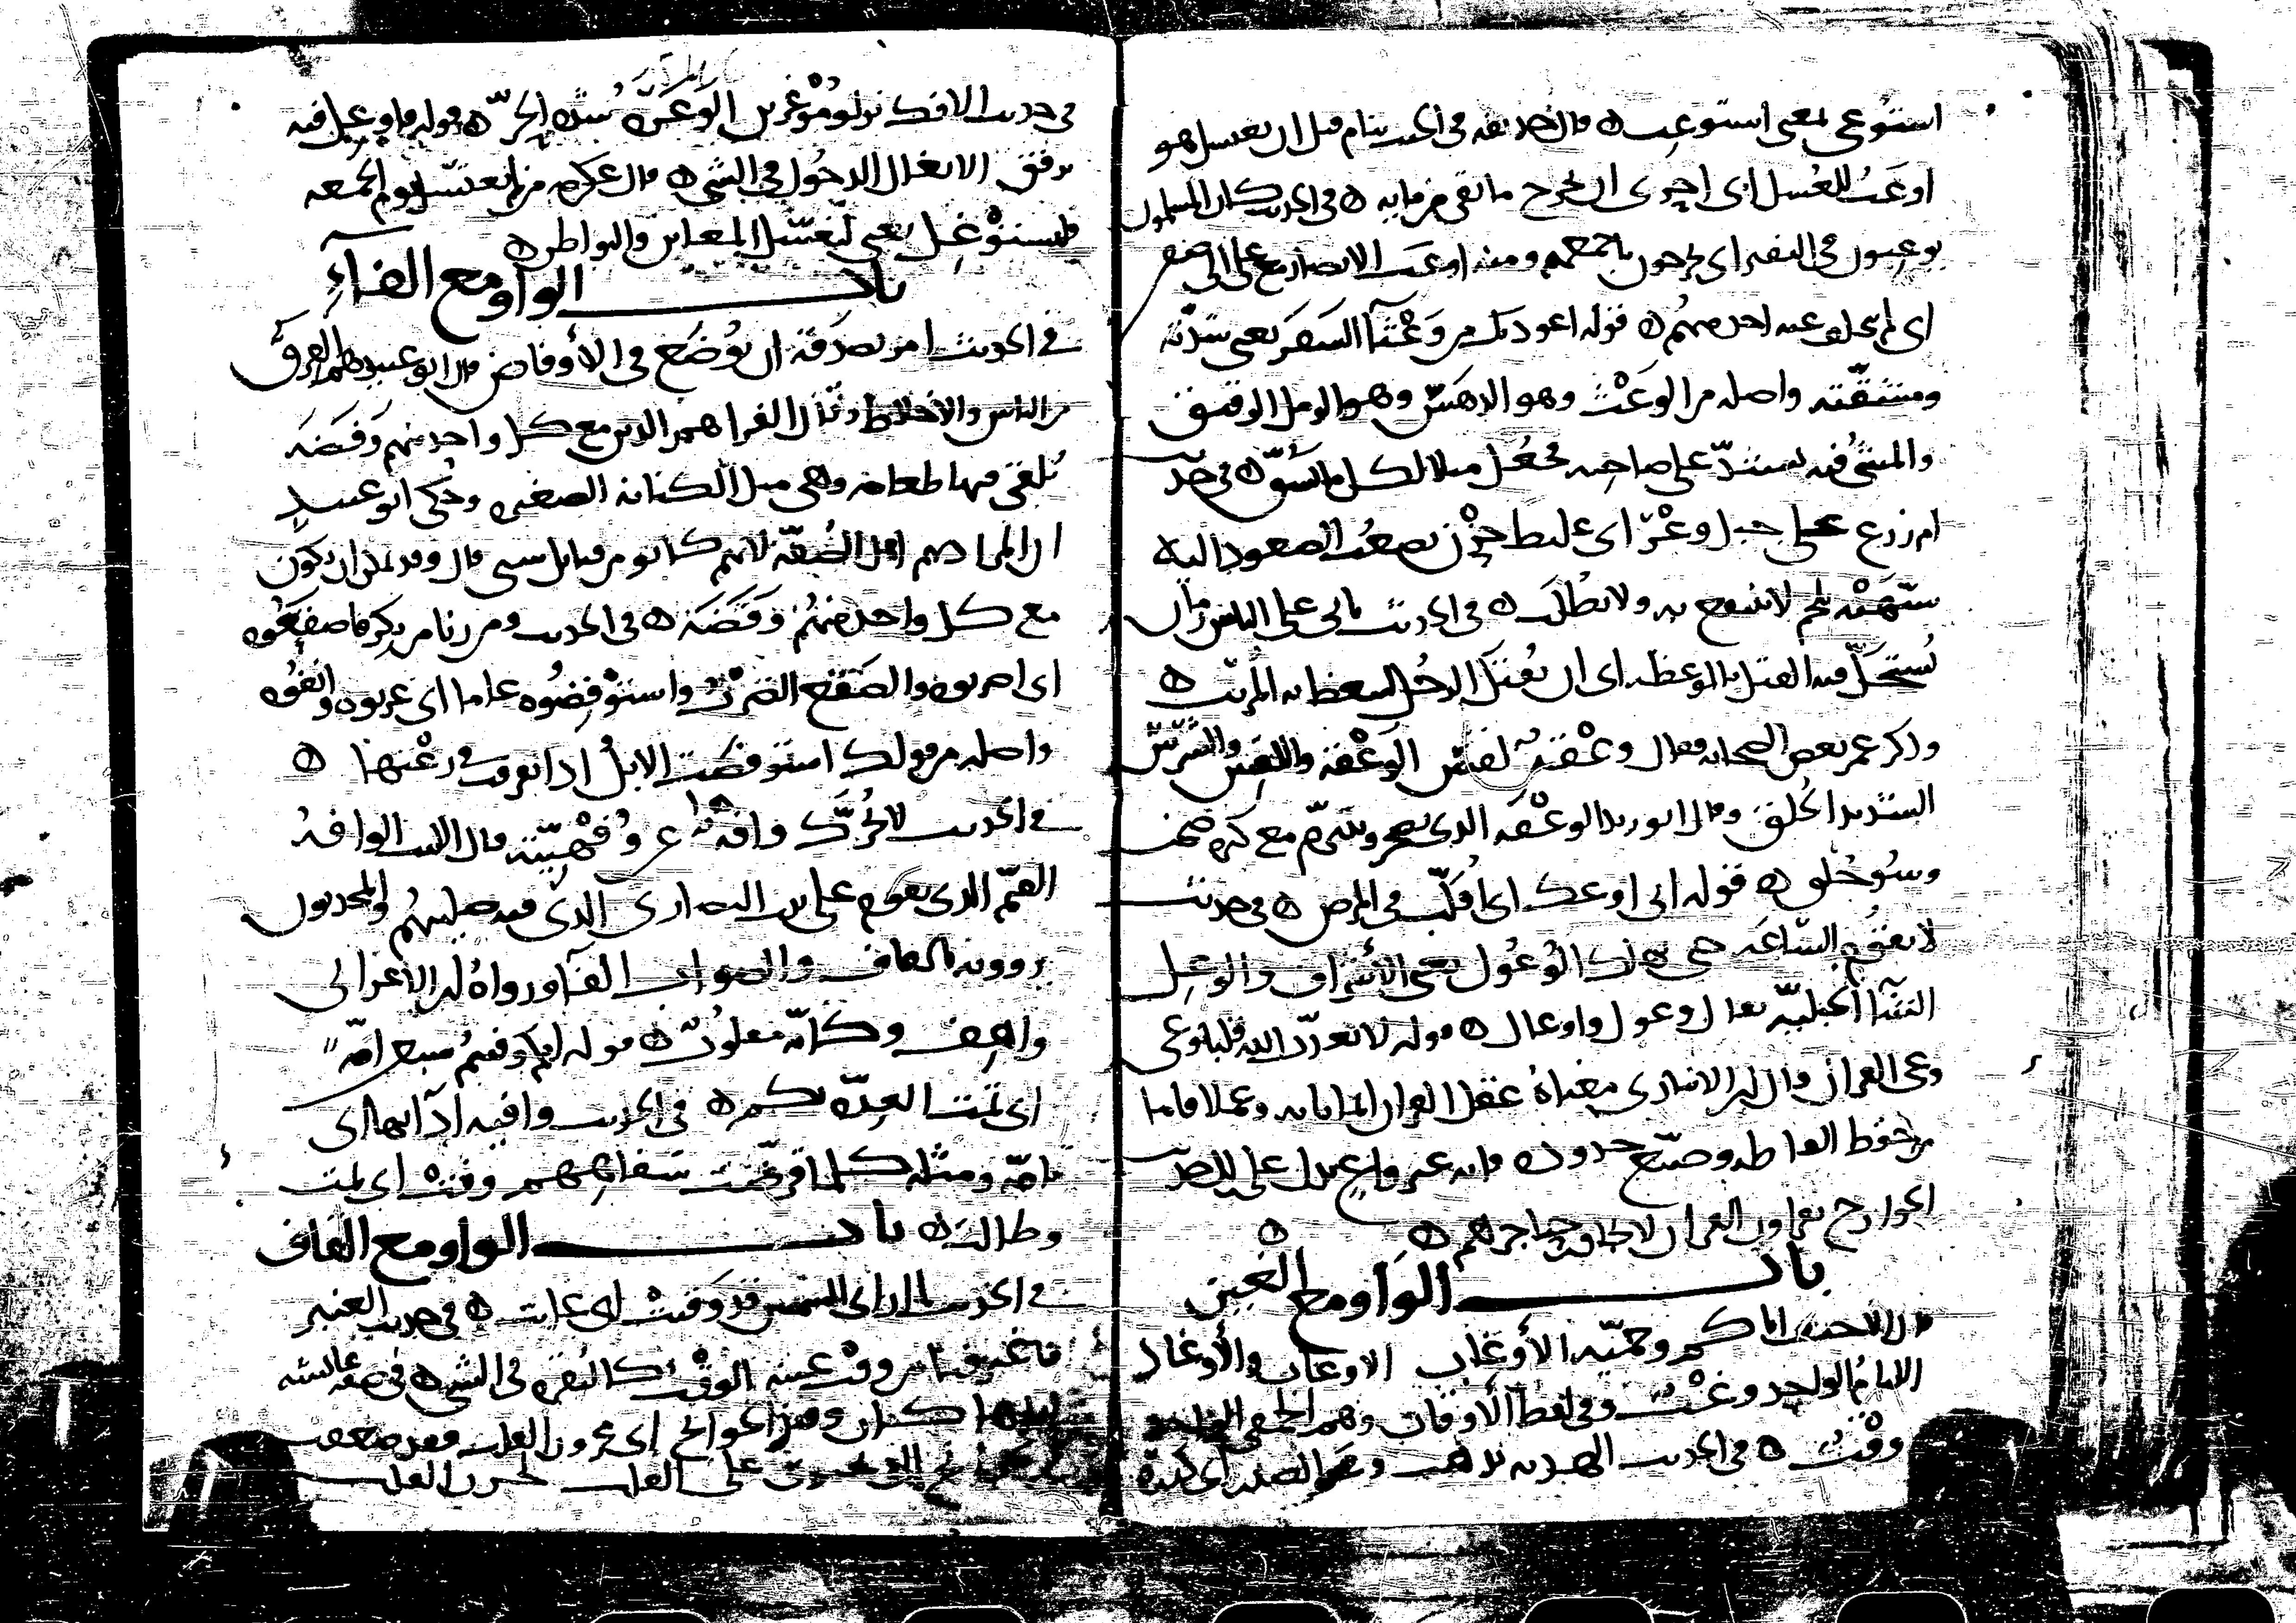 استوعى بمعنى استوعب ه قال حذيفة في الجنب ينام قبل ان يغتسل هو
اوعب للغسل اى احرى ان يخرج ما بقى من مايه ه في الحديث كان المسلمون
يوعبون في النفير اى يخرجون باجمعهم ومنه اوعب الانصار مع على الى صفين
اى لم يتخلف عنه احد منهم ه قوله اعوذ بك من وعثاء السفر يعنى شدته
ومشقته واصله من الوعث وهو الدهس وهو الرمل الرقيق
والمشى فيه يشتد على صاحبه فجعل مثلا لكل ما يشق ه في حديث
ام زرع على جبل وعر اى غليظ حزن يصعب الصعود اليه
شبهته بلحم لا ينتفع به ولا يطلب ه في الحديث ياتى على الناس زمان
يستحل فيه القتل بالموعظة اى ان يقتل الرجل ليتعظ به المريب ه
وذكر عمر بعض الصحابة فقال وعقة لقس الوعقة واللقس والشرس
الشديد الخلق وقال ابو زيد الوعقة الذى يضجر ويتبرم مع كثرة صخب
وسوء خلق ه قوله انى اوعك اى اقلب في المرض ه في حديث
لا تقوم الساعة حتى تهلك الوعول يعنى الاشراف والوعل
الشاء الجبلية يقال وعول واوعال ه قوله لا يعذب الله قلبا وعى
وعى القران قال ابن الانبارى معناه عقل القران ايمانا به وعملا فاما
من حفظ الفاظه وضيع حدوده فانه غير واع يدل على ذلك حديث
الخوارج يقراون القران لا يجاوز حناجرهم ه
باب الواو مع الغين
قال الاحنف اياكم وحمية الاوغاب الاوغاب والاوغاد
اللئام الواحد وغب وفي لفظ الاوقاب وهم الحمقى الواحد
وقب ه في الحديث الهدية تذهب وغر الصدر اى
في حديث الافك نزلوا موغرين الوغرة شدة الحر ه قوله فاوغل فيه
برفق الايغال الدخول في الشى ه قال عكرمة من لم يغتسل يوم الجمعة
فليستوغل يعنى ليغسل المغابن والبواطن ه
باب الواو مع الفاء
في الحديث امر بصدقة ان توضع في الاوفاض قال ابو عبيد هم الفرق
من الناس والاخلاط وقال الفرا هم الذين مع كل واحد منهم وفضة
يلقى فيها طعامه وهى مثل الكنانة الصغيرة وحكى ابو عبيد
ان المراد بهم اهل الصفة لانهم كانوا من قبايل شتى قال وقد يمكن ان يكون
مع كل واحد منهم وفضة ه في الحديث ومن زنا من بكر فاصقعوه
اى اضربوه والصقع الضرب واستوفضوه عاما اى غربوه وانفوه
واصله من قولك استوفضت الابل اذا تفرقت في رعيها ه
في الحديث لا يحرك وافه عن وفهيته قال الليث الوافه
القيم الذى يقوم على بيت النصارى الذى فيه صليبهم والمحدثون
يروونه بالقاف والصواب الفاء ورواه ابن الاعرابى
واهف وكانه مقلوب ه قوله انكم وفيتم سبعين امة
اى تمت العدة بكم ه في الحديث وافية اذانها اى
تامة ومثله كلما قرضت شفاههم وفت اى تمت
وطالت ه باب الواو مع القاف
في الحديث لما راى الشمس قد وقبت اى غابت ه في حديث العنبر
فاغترفنا من وقب عينه الوقب كالنقرة في الشى ه في صفة عائشة